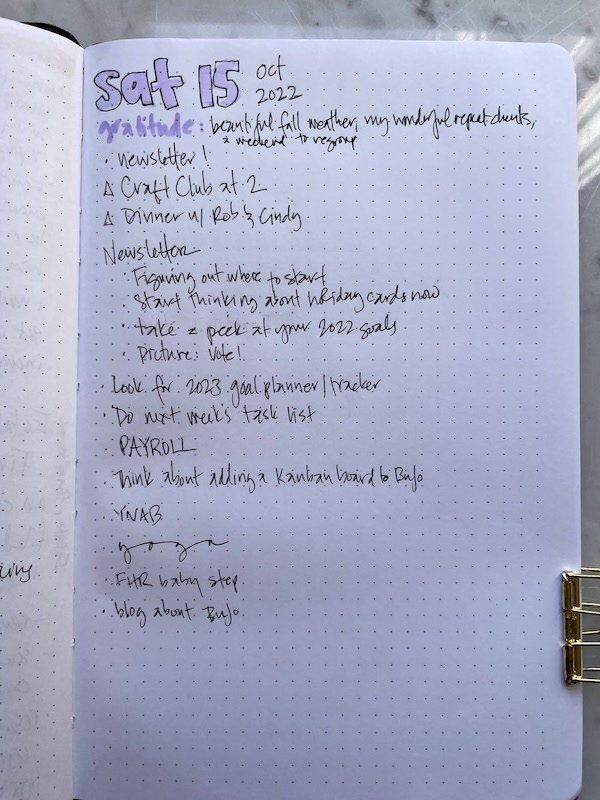 Sat 15 Oct
2022
gratitude: beautiful fall weather, my wonderful repeat clients,
a weekend to regroup
· newsletter!
Δ Craft Club at 2
Δ Dinner w/ Rob & Cindy
Newsletter
· Figuring out where to start
· Start thinking about holiday cards now
· take a peek at your 2022 goals
· Picture: Vote!
· Look for 2023 goal planner/tracker
· Do next week's task list
· PAYROLL
· Think about adding a Kanban board to BuJo
· YNAB
· yoga
· FHR baby step
· blog about BuJo